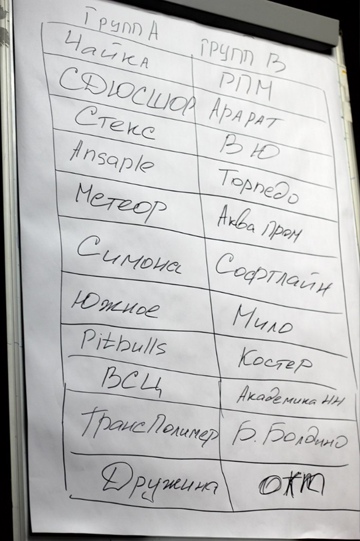 Групп А Групп В
Чайка РПМ
СДЮСШОР Арарат
Стекс ВЮ
Ansaple Торпедо
Метеор Аква Пром
Симона Софтлайн
Южное Мило
Pitbulls Костер
ВСЦ Академика НН
ТрансПолимер Б. Болдино
Дружина